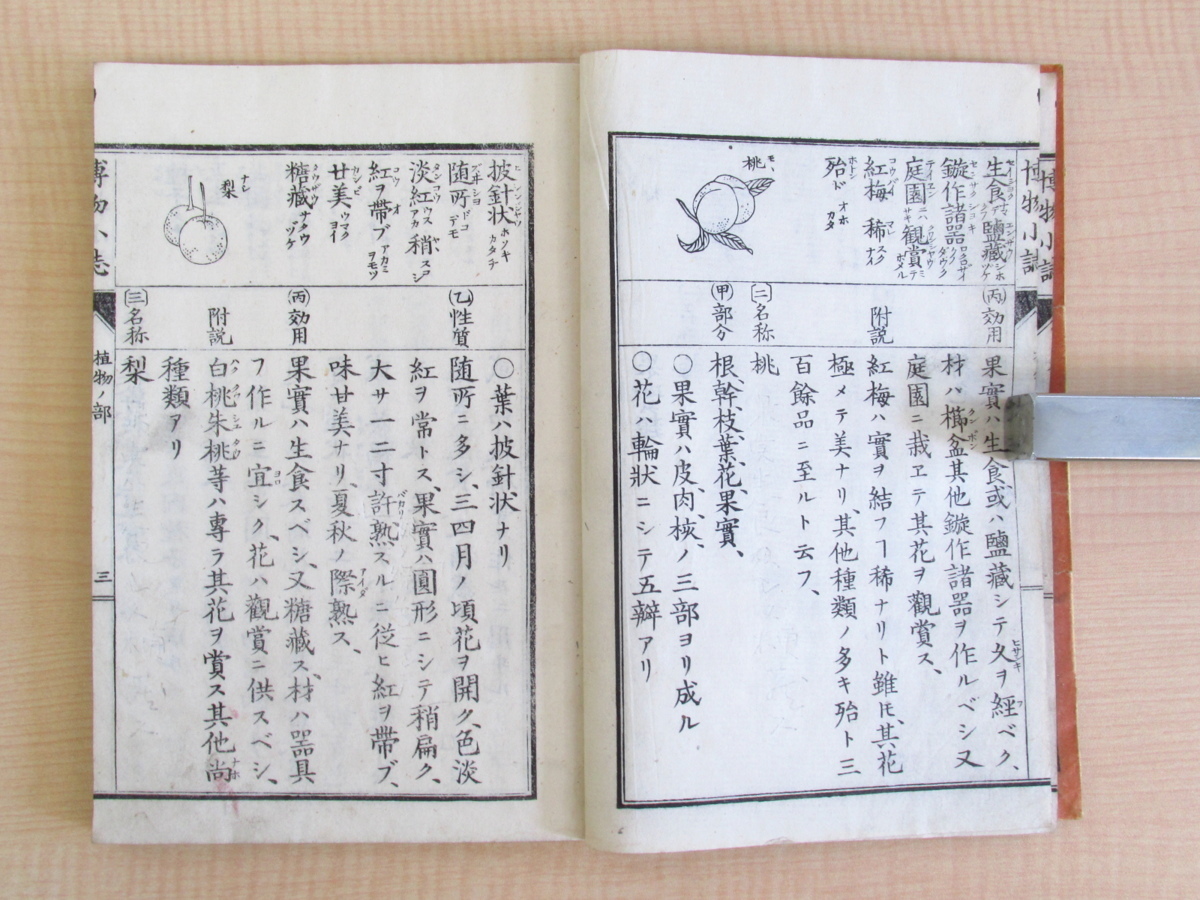 博物小誌
生食 ナマデクフ 鹽藏 シホヅケ
鏇作諸器 ロクロザイクダウグ
庭園ニハ 觀賞
紅梅 稀 マレスクナイ
殆ド オホカタ
桃
㋥丙 効用
附説
二 名称
甲 部分
果實ハ生食、或ハ鹽藏シテ久ヲ經ベク、
材ハ櫛、盆其他鏇作諸器ヲ作ルベシ又
庭園ニ栽ヱテ其花ヲ觀賞ス、
紅梅ハ實ヲ結フヿ稀ナリト雖𪜈、其花
極メテ美ナリ、其他種類ノ多キ殆ト三
百餘品ニ至ルト云フ、
桃
根、幹、枝、葉、花、果實、
○果實ハ皮、肉、核ノ三部ヨリ成ル
○花ハ輪狀ニシテ五瓣アリ
披針狀 ホソキカタチ
随所 ドコデモ
淡紅 ウスアカ 稍 スコシ
紅ヲ帶ブ アカミヲモツ
甘美 ウマイ
糖藏 サタウヅケ
梨 ナシ
乙 性質
丙 効用
附説
三 名称
○葉ハ披針狀ナリ
随所ニ多シ、三四月ノ頃花ヲ開ク、色淡
紅ヲ常トス、果實ハ圓形ニシテ稍扁ク、
大サ一二寸許、熟スルニ從ヒ紅ヲ帶ブ、
味甘美ナリ、夏秋ノ際熟ス、
果實ハ生食スベシ、又糖藏ス、材ハ器具
フ作ルニ宜シク、花ハ觀賞ニ供スベシ、
白桃朱桃等ハ專ラ其花ヲ賞ス其他尚
種類アリ
梨
博物小誌
植物ノ部
三